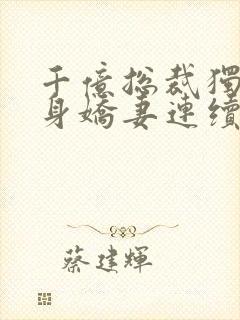 千億總裁獨
身嬌妻連續
蔡建輝